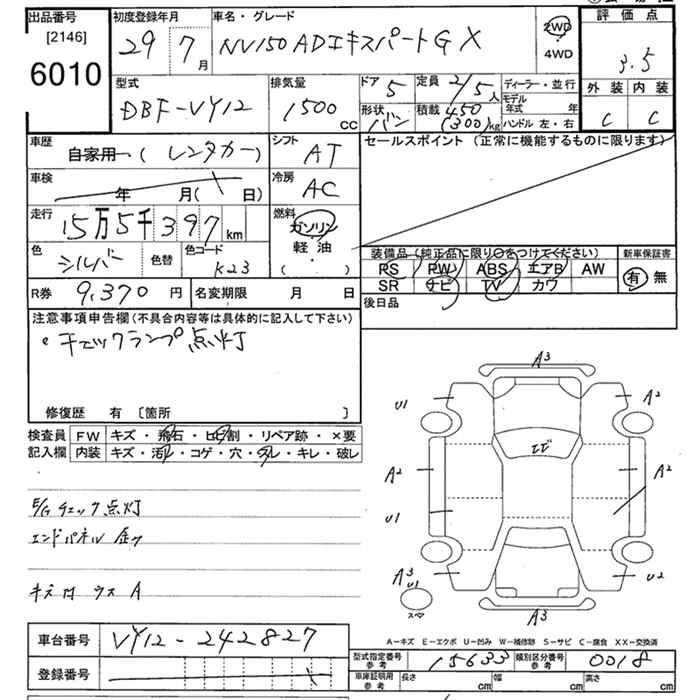 出品番号 初度登録年月 車名・グレード 評価点
[2146] 29 7月 NV150 ADエキスパートGX 2WD 4WD 3.5
6010 型式 排気量 ドア 5 定員 2/5人 ディーラー・並行 外装 内装
DBF-VY12 1500cc 形状 バン 積載 450(300)kg モデル年式 年 ハンドル 左・右 C C
車歴 自家用―(レンタカー) シフト AT セールスポイント(正常に機能するものに限ります)
車検 年 月( 日) 冷房 AC
走行 15万5千397km 燃料 ガソリン・軽油( )
色 シルバー 色替 色コード K23 装備品(純正品に限り○をつけてください) 新車保証書
PS PW ABS エアB AW 有・無
R券 9,370円 名変期限 月 日 SR ナビ TV カワ
後日品
注意事項申告欄(不具合内容等は具体的に記入して下さい)
・チェックランプ点灯
修復歴 有 [箇所 ]
検査員 FW キズ・飛石・ヒビ割・リペア跡・×要
記入欄 内装 キズ・汚レ・コゲ・穴・スレ・キレ・破レ
E/Gチェック点灯
エンドパネル
キズ凹 ウス A
A3
U1 A2
エビ
A2 A2
U1
A3 U1 U2
スペ A3
A-キズ E-エクボ U-凹み W-補修跡 S-サビ C-腐食 XX-交換済
車台番号 VY12-242827
型式指定番号 参考 15633 類別区分番号 参考 0018
登録番号 車庫証明用 参考 長さ cm 幅 cm 高さ cm